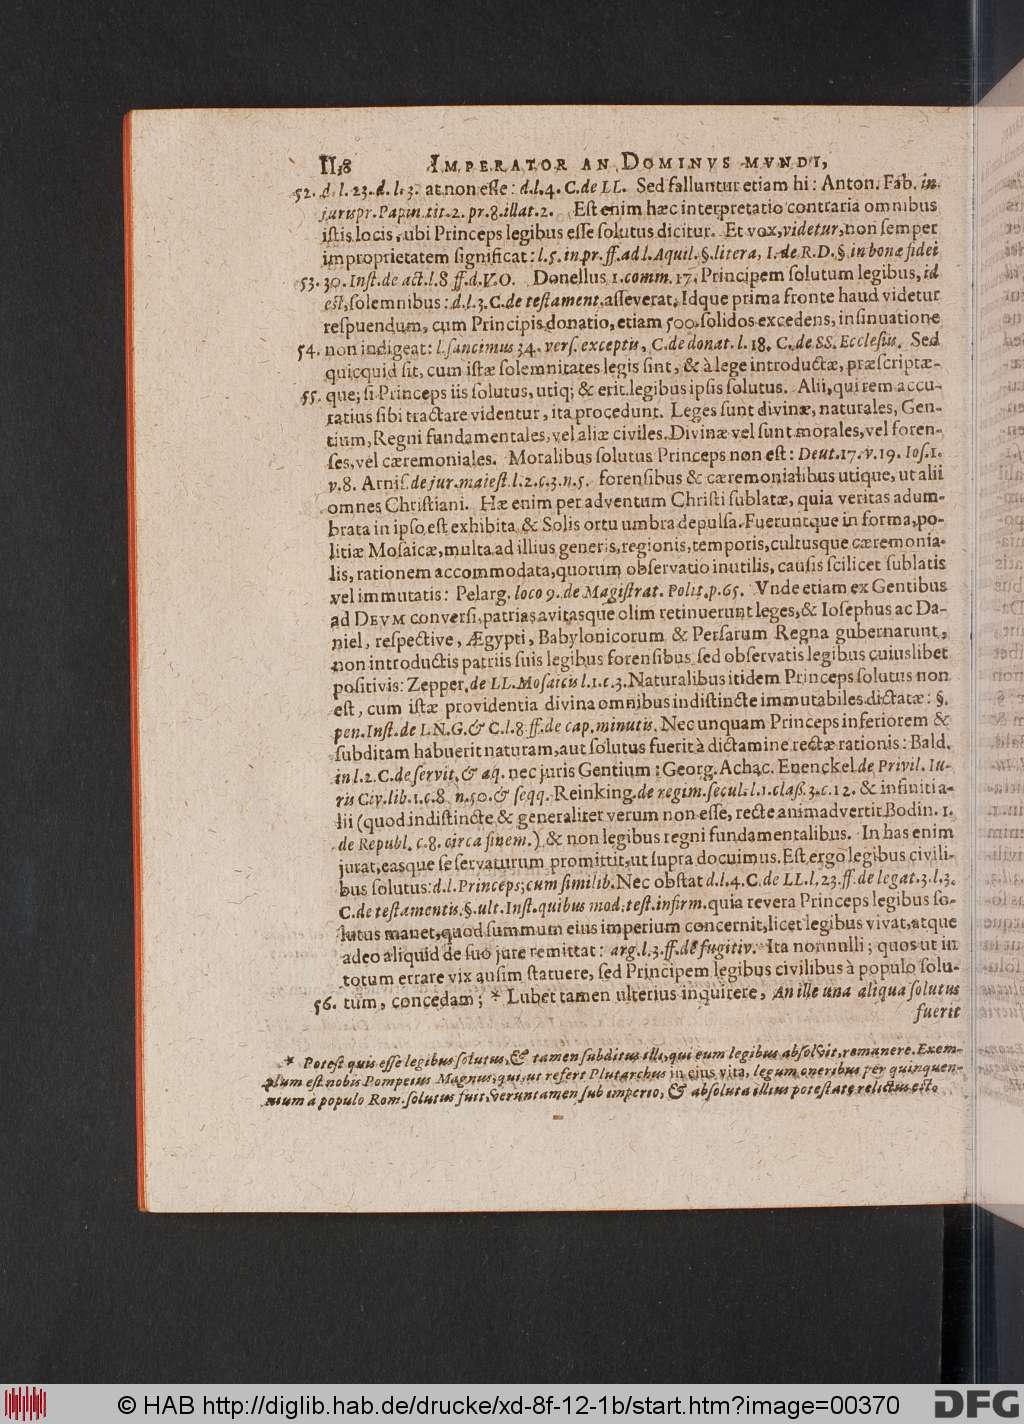 II38 IMPERATOR AN DOMINVS MVNDI,
52. d. l. 23. d. l. 3. at non esse: d. l. 4. C. de LL. Sed falluntur etiam hi: Anton. Fab. in
jurispr. Papin. tit. 2. pr. 8. illat. 2. Est enim hæc interpretatio contraria omnibus
istis locis, ubi Princeps legibus esse solutus dicitur. Et vox, videtur, non semper
improprietatem significat: l. 5. in pr. ff. ad l. Aquil. §. litera, I. de R. D. §. in bonæ fidei
53. 30. Inst. de act. l. 8 ff. d. V. O. Donellus 1. comm. 17. Principem solutum legibus, id
est, solemnibus: d. l. 3. C. de testament. asseverat. Idque prima fronte haud videtur
respuendum, cum Principis donatio, etiam 500. solidos excedens, insinuatione
54. non indigeat: l. sancimus 34. vers. exceptis, C. de donat. l. 18. C. de SS. Ecclesiis. Sed
quicquid sit, cum istæ solemnitates legis sint, & à lege introductæ, præscriptæ-
55. que; si Princeps iis solutus, utiq; & erit legibus ipsis solutus. Alii, qui rem accu-
ratius sibi tractare videntur, ita procedunt. Leges sunt divinæ, naturales, Gen-
tium, Regni fundamentales, vel aliæ civiles. Divinæ vel sunt morales, vel foren-
ses, vel cæremoniales. Moralibus solutus Princeps non est: Deut. 17. v. 19. Ios. 1.
v. 8. Arnis. de jur. maiest. l. 2. c. 3. n. 5. forensibus & cæremonialibus utique, ut alii
omnes Christiani. Hæ enim per adventum Christi sublatæ, quia veritas adum-
brata in ipso est exhibita & Solis ortu umbra depulsa. Fueruntque in forma, po-
litiæ Mosaicæ, multa ad illius generis, regionis, temporis, cultusque cæremonia-
lis, rationem accommodata, quorum observatio inutilis, causis scilicet sublatis
vel immutatis: Pelarg. loco 9. de Magistrat. Polit. p. 65. Vnde etiam ex Gentibus
ad DEVM conversi, patrias avitasque olim retinuerunt leges, & Iosephus ac Da-
niel, respective, Ægypti, Babylonicorum & Persarum Regna gubernarunt,
non introductis patriis suis legibus forensibus sed observatis legibus cuiuslibet
positivis: Zepper. de LL. Mosaicis l. 1. c. 3. Naturalibus itidem Princeps solutus non
est, cum istæ providentia divina omnibus indistincte immutabiles dictatæ: §.
pen. Inst. de I. N. G. & C. l. 8 ff. de cap. minutis. Nec unquam Princeps inferiorem &
subditam habuerit naturam, aut solutus fuerit à dictamine rectæ rationis: Bald.
in l. 2. C. de servit. & aq. nec juris Gentium: Georg. Achac. Enenckel de Privil. Iu-
ris Civ. lib. 1. c. 8. n. 50. & seqq. Reinking. de regim. secul. l. 1. class. 3. c. 12. & infiniti a-
lii (quod indistincte & generaliter verum non esse, recte animadvertit Bodin. 1.
de Republ. c. 8. circa finem.) & non legibus regni fundamentalibus. In has enim
jurat, easque se servaturum promittit, ut supra docuimus. Est ergo legibus civili-
bus solutus: d. l. Princeps; cum similib. Nec obstat d. l. 4. C. de LL. l. 23. ff. de legat. 3. l. 3.
C. de testamentis. §. ult. Inst. quibus mod. test. infirm. quia revera Princeps legibus so-
lutus manet, quod summum eius imperium concernit, licet legibus vivat, atque
adeo aliquid de suo jure remittat: arg. l. 3. ff. de fugitiv. Ita nonnulli; quos ut in
totum errare vix ausim statuere, sed Principem legibus civilibus à populo solu-
56. tum, concedam; * Lubet tamen ulterius inquirere, An ille una aliqua solutus
fuerit
* Potest quis esse legibus solutus, & tamen subditus illi, qui eum legibus absolvit, remanere. Exem-
plum est nobis Pompeius Magnus, qui, ut refert Plutarchus in eius vita, legum oneribus per quinquen-
nium à populo Rom. solutus fuit, veruntamen sub imperio, & absoluta illius potestate relictus est.
© HAB http://diglib.hab.de/drucke/xd-8f-12-1b/start.htm?image=00370
DFG